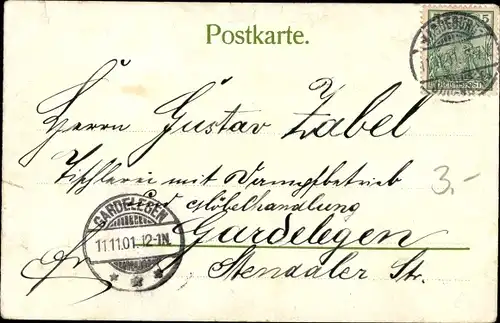 Postkarte.
5
MAGDEBURG
Herrn Gustav Zabel
Tischlerei mit Dampfbetrieb
und Möbelhandlung
3.-
GARDELEGEN
11.11.01. 12-1N.
Gardelegen
Stendaler Str.